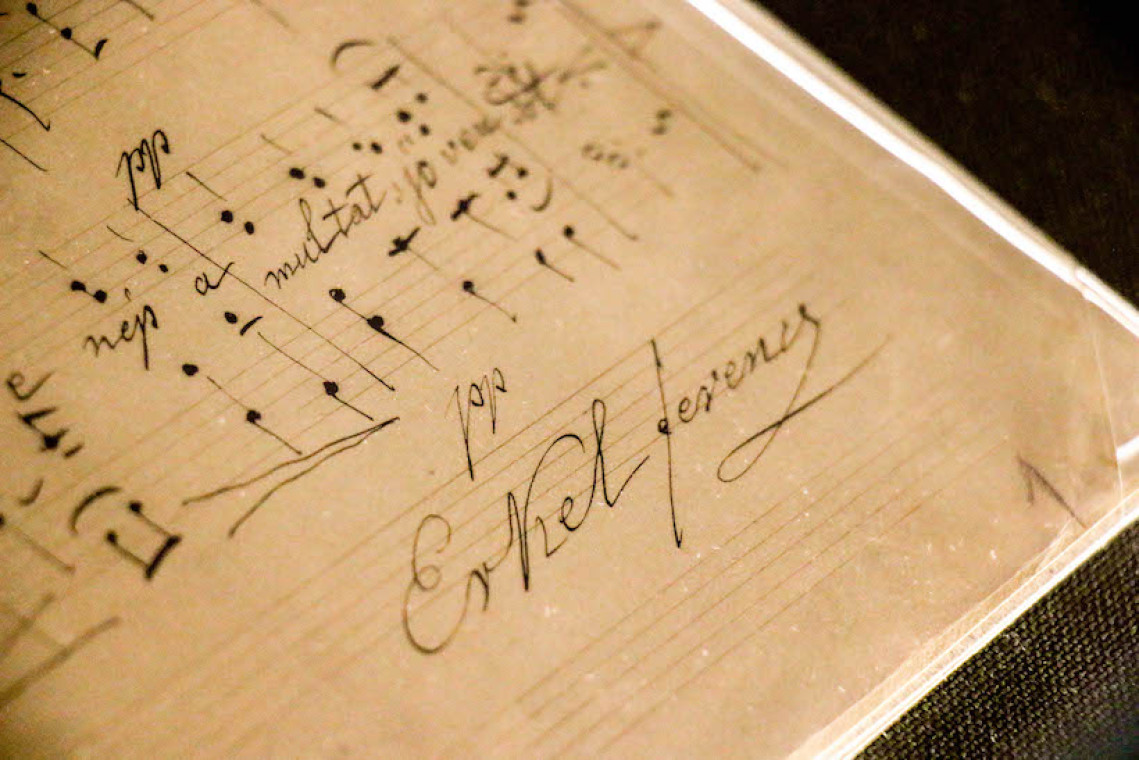 pp
nép a multat s jö
pp
Erkel Ferencz